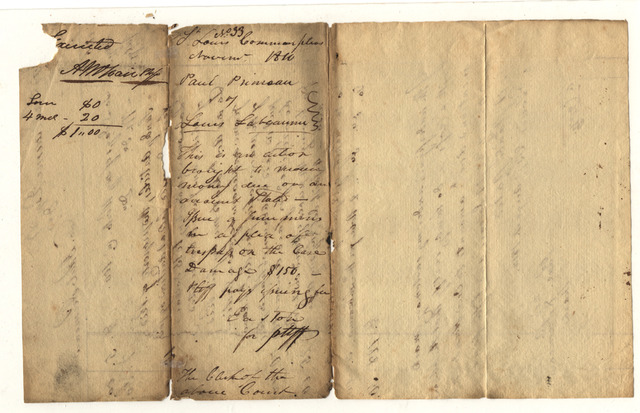 Executed
Serv 80
4 miles - 20
$1.00
No 33
St Louis Common pleas
Novem 1811
Paul Primeau
vs
Louis Labeaume
This is an action
brought to recover
money due on an
account Stated —
Issue a Summons
in a plea of
trespass on the Case
Damage $150. —
Plff pays issuing fee
Easton
for plff
The Clerk of the
above Court